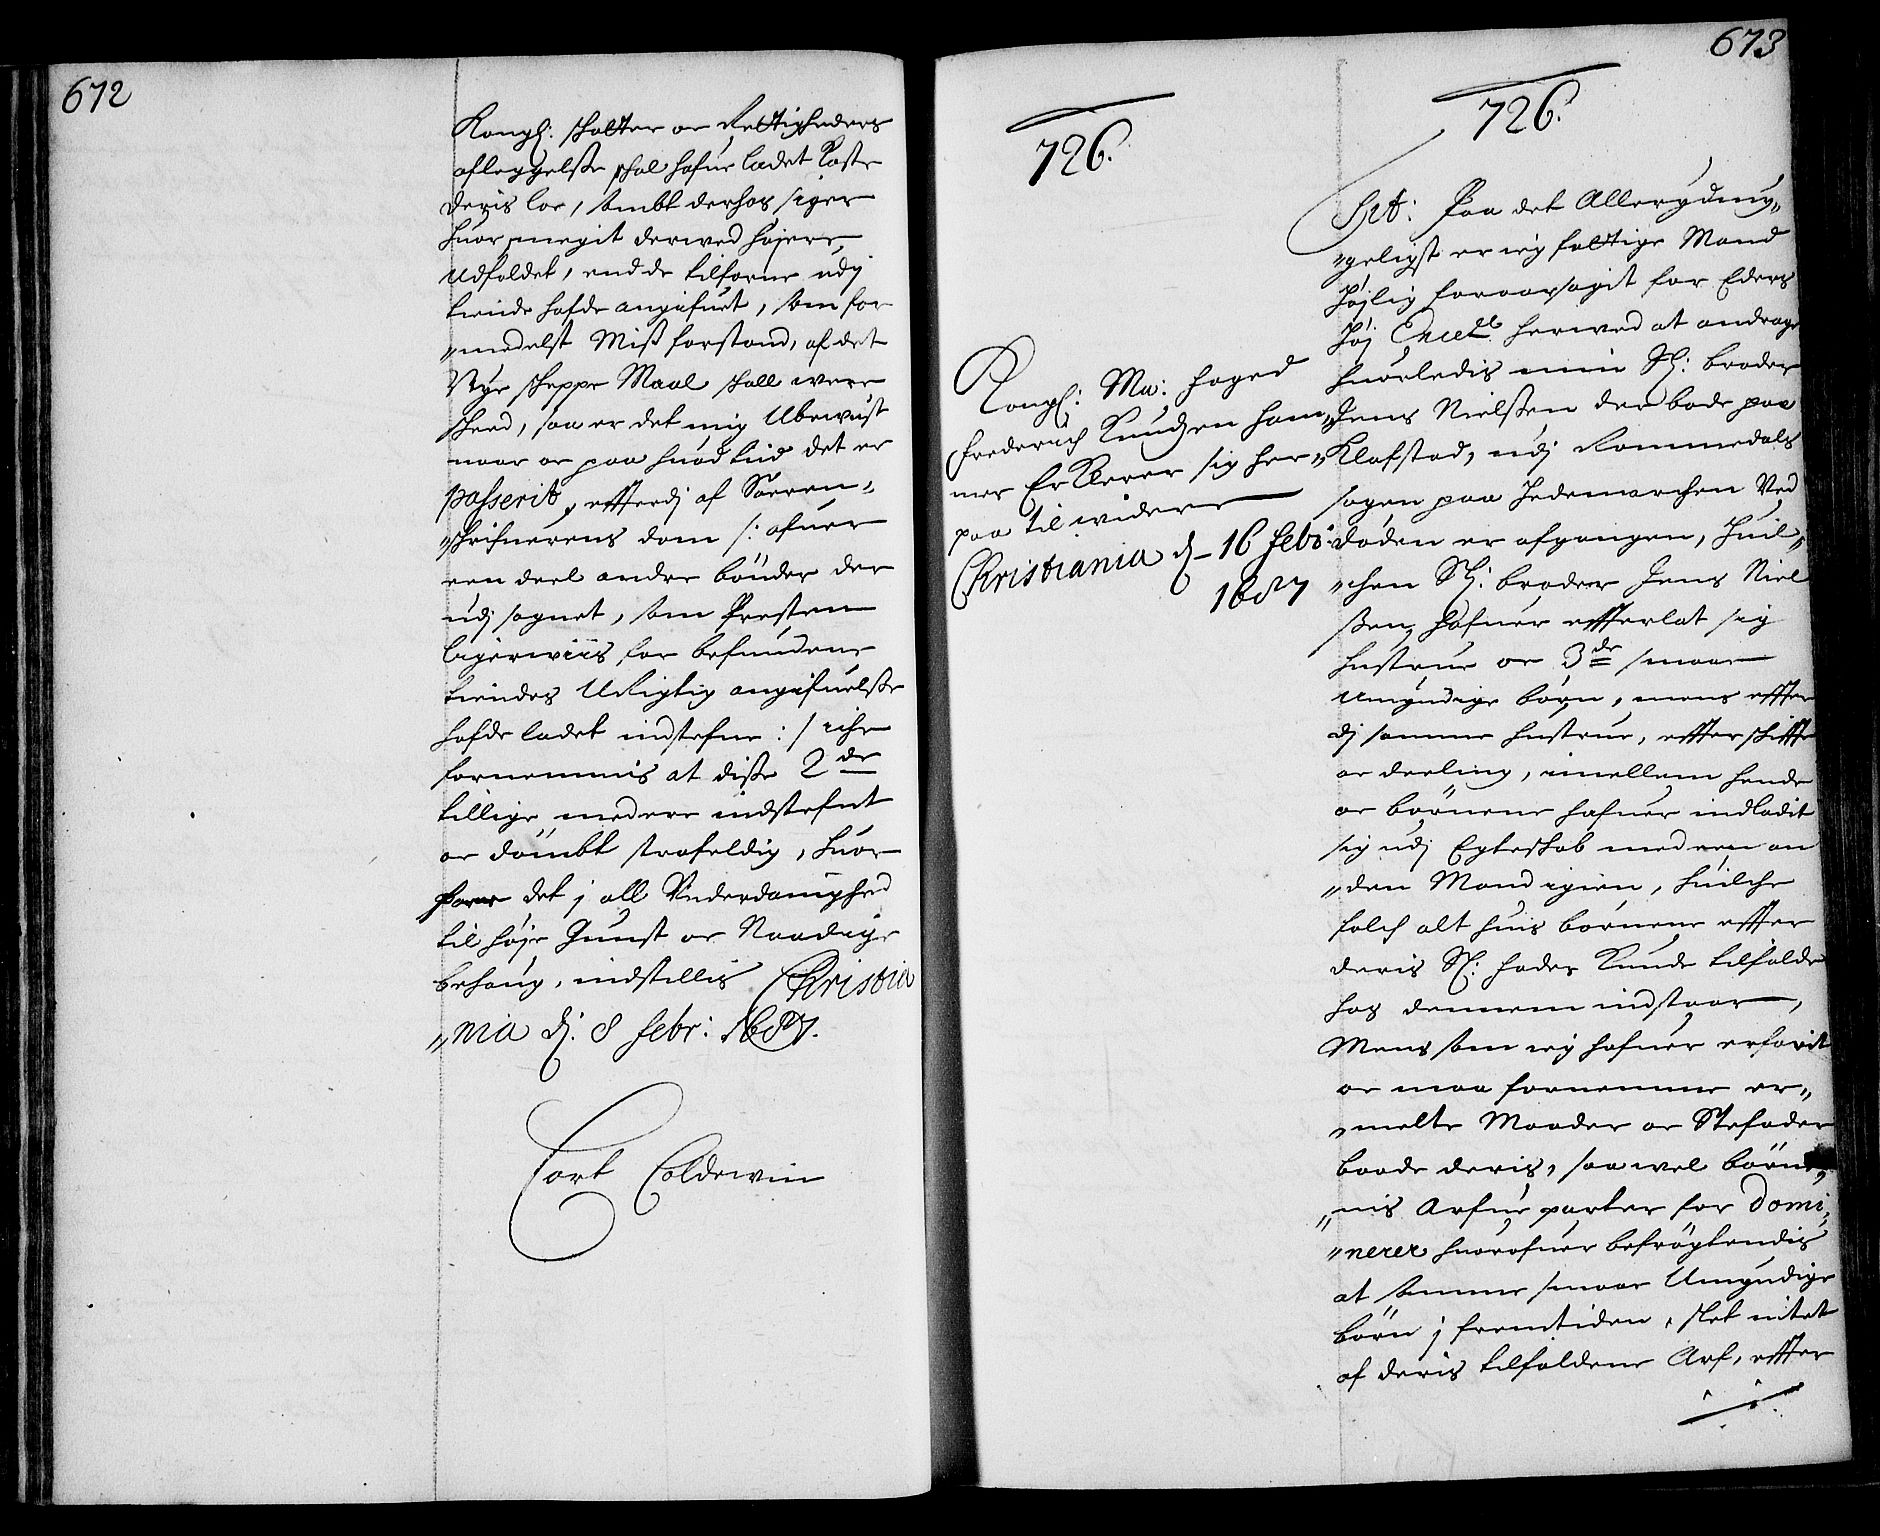 672
Kongl: skatter oc Rettigheders
afleggelsse skal hafue ladet kaste
deris lov, sambt derhos siger
huor megit derved højere
Udfaldet, end de tilforne udj
tiende hafde angifuet, som for
„medelst Miss forstand, af det
Nye skeppe Maal skall were
skeed, saa er det mig Ubevust
naar oc paa huad tiid det er
passerit, efterdj af Soren„
„skrifuerens dom /: ofuer
een deel andre bønder der
udj sognet, som Presten
ligerwiis for befundene
tiendes Urigtig angifuelsse
hafde ladet indstefne :/ iche
fornemmis at disse 2de
tillige med ere indstefnt
oc dømbt strafeldig, huor
fore det j all Underdanighed
til høje Gunst oc Naadige
behaug, indstillis Christia
„nia dj: 8 febr: 1687.
Cort Coldewin
673
726.
Kongl: Ma: foged
Frederich Knudzen ham„
mer Erklerer sig her„
paa til widere
Christiania d. 16 febr:
1687
726.
Srt: Paa det Allerydmy„
„geligst er ieg fattige Mand
højlig foraarsagit for Eders
høj Excell: herved at andrage
huorledis min Sl: broder
Jens Nielssen der bode paa
Klafstad, udj Rommedals
sogen paa Hedemarchen Ved
døden er afgangen, huil„
„chen Sl: broder Jens Niel
ssen, hafuer efterlat sig
hustrue oc 3de smaae
umyndige børn, mens effter
dj samme hustrue, effter skiffte
oc deeling, imellem hende
oc børnene hafuer indladit
sig udj Egteskab med een an
„den Mand igien, huilche
folch alt huis børnene effter
deris Sl: fader kunde tilfalde
hos dennem indstaar,
Mens som ieg hafuer erfarit
oc maa fornemme er„
„melte Moder oc Stefader
baade deris, saa vel børne„
„nis Arfue parter for domi„
„nerer huorofuer befrøgtendis
at samme smaae Umyndige
børn j fremtiden, slet intet
af deris tilfaldene Arf, effter